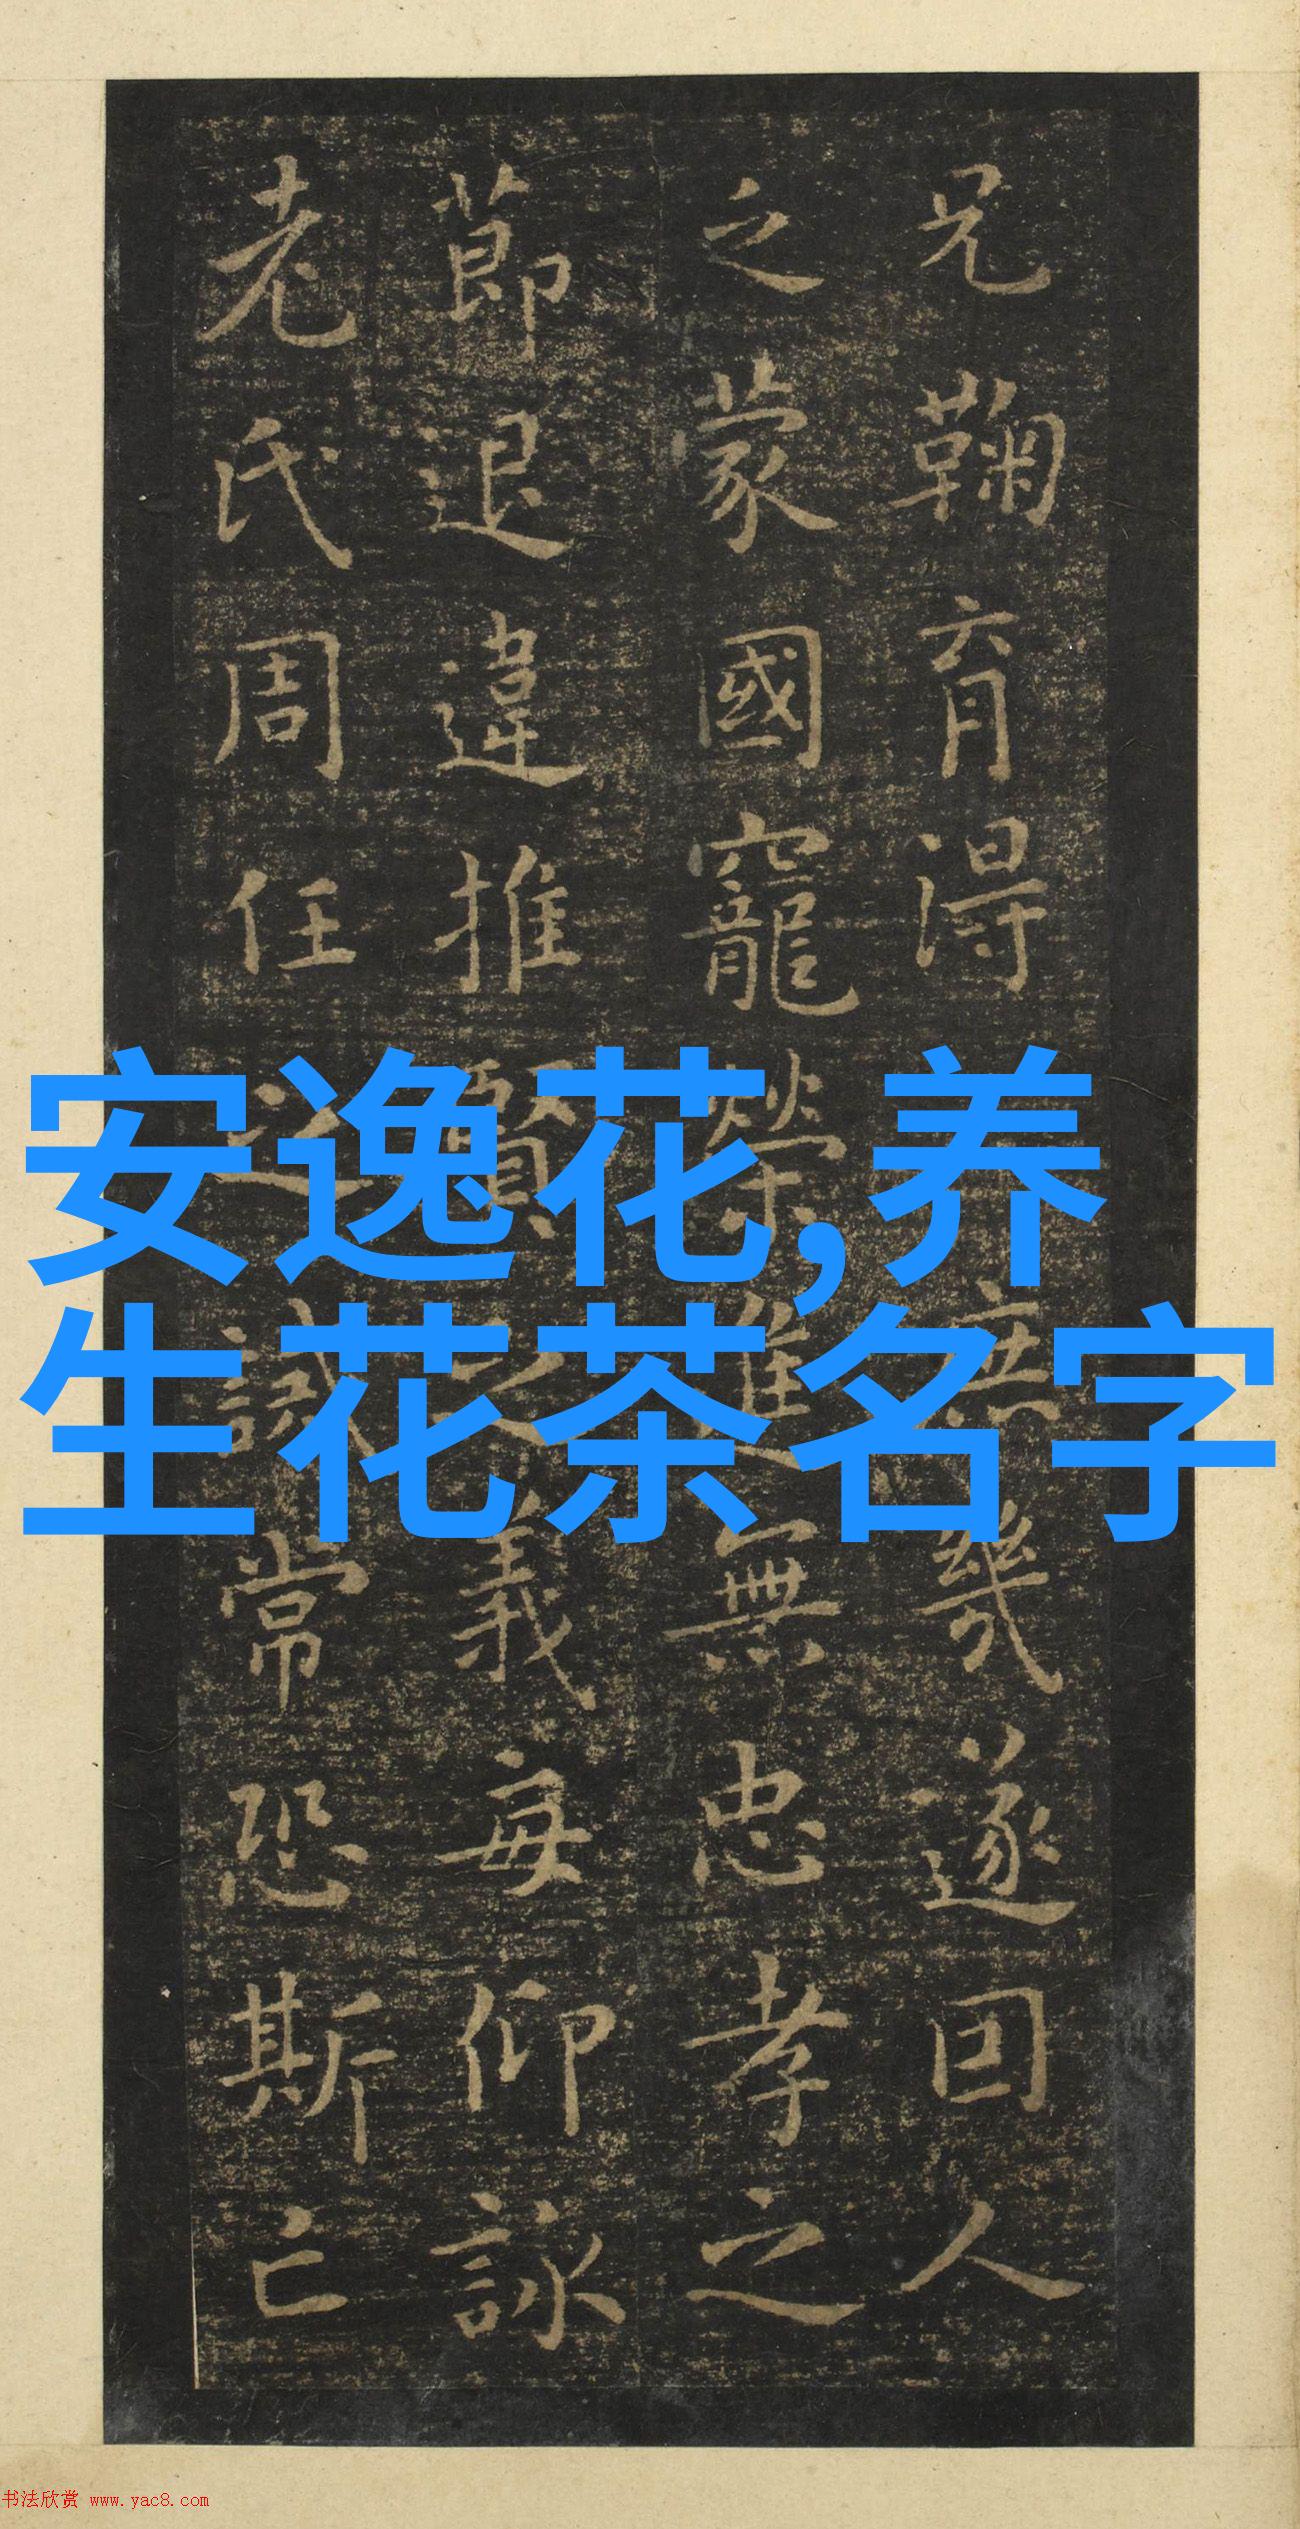 兄鞠育得
庶幾遂回人
之蒙國寵榮進無忠孝之
莭退違推賢之義每仰詠
老氏周任之誡常恐斯亡
安逸花,养
生花茶名字
书法欣赏 www.yac8.com